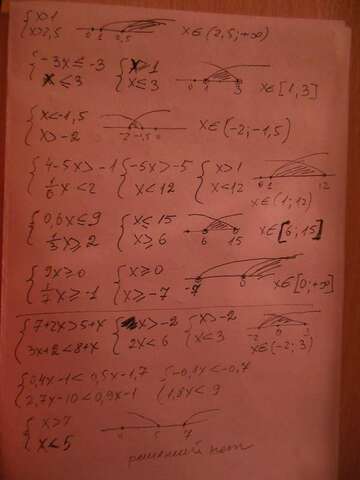 { x>1 x>2,5 0 1 2,5 x∈(2,5; +∞)
{ -3x ≤ -3 x ≤ 3 { x≥1 x≤3 0 1 3 x∈[1,3]
{ x<-1,5 x>-2 -2 -1,5 0 x∈(-2; -1,5)
{ 4-5x>-1 1/6x<2 { -5x>-5 x<12 { x>1 x<12 0 1 12 x∈(1; 12)
{ 0,6x≤9 1/3x≥2 { x≤15 x≥6 6 15 x∈[6; 15]
{ 9x≥0 1/7x≥-1 { x≥0 x≥-7 -7 0 x∈[0; +∞]
{ 7+2x>5+x 3x+2<8+x { x>-2 2x<6 { x>-2 x<3 -2 0 3 x∈(-2; 3)
{ 0,4x-1<0,5x-1,7 2,7x-10<0,9x-1 { -0,1x<-0,7 1,8x<9
{ x>7 x<5 0 5 7
решений нет